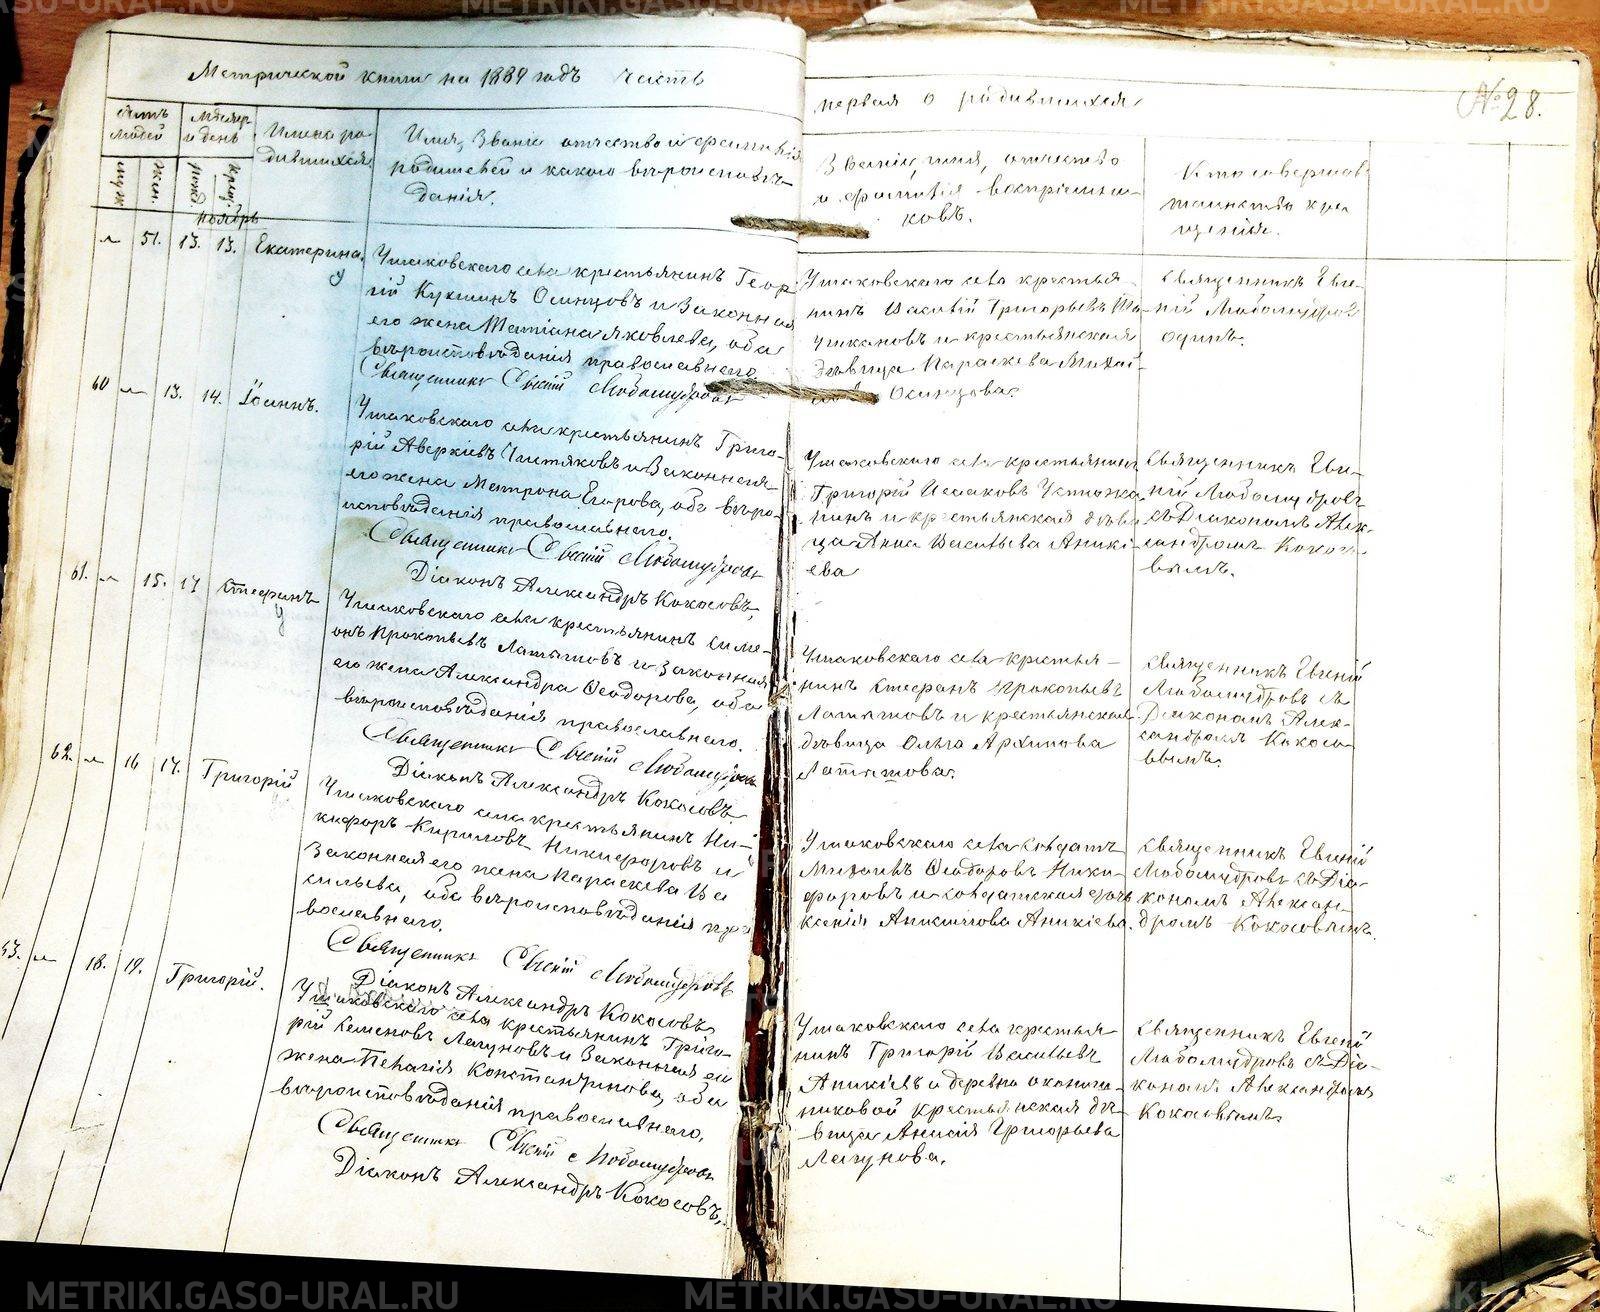 METRIKI.GASO-URAL.RU
Метрической книги на 1889 годъ часть
первая о родившихся
№ 28.
Имена ро-
дившихся.
Имя, Званіе отчество и фамилія
родителей и какого вѣроисповѣ-
данія.
Званіе, имя, отчество
и фамилія воспріемни-
ковъ.
Кто совершал
таинство кре
щенія.
ноябрь
51. 13. 13. Екатерина.
Ушаковскаго села крестьянинъ Геор
гій Осинцовъ и Законная
его жена Татіана Яковлева, оба
вѣроисповѣданія православнаго.
Священникъ Евгеній Любомудровъ
Ушаковскаго села крестья-
нинъ Василій Григорьевъ
и крестьянская
дѣвица Параскева Михай-
Осинцова.
Священникъ Евге-
ній Любомудров
одинъ.
60 13. 14. Іоаннъ.
Ушаковскаго села крестьянинъ Григо-
рій Аверкіевъ Чистяковъ и Законная
его жена Матрона Егорова, оба вѣро-
исповѣданія православнаго.
Священникъ Евгеній Любомудровъ
Діаконъ Александръ Кокосовъ,
Ушаковскаго села крестьянинъ
Григорій Исаковъ
и крестьянская дѣви
ца Анна Васильева Аникі-
ева
Священникъ Евге-
ній Любомудровъ
съ Діакономъ Алек-
сандромъ Кокосо-
вымъ.
61. 15. 17 Стефанъ
Ушаковскаго села крестьянинъ Симе-
онъ Прокопьевъ Латышовъ и Законная
его жена Александра Ѳеодорова, оба
вѣроисповѣданія православнаго.
Священникъ Евгеній Любомудровъ
Діаконъ Александръ Кокосовъ
Ушаковскаго села крестья-
нинъ Стефанъ Прокопьевъ
Латышовъ и крестьянская
дѣвица Ольга Архипова
Латышова.
Священникъ Евгеній
Любомудровъ съ
Діакономъ Алек-
сандромъ Кокосо-
вымъ.
62. 16 17. Григорій
Ушаковскаго села крестьянинъ Ни-
кифоръ Кириловъ Никифоровъ и
Законная его жена Параскева Ва
сильева, оба вѣроисповѣданія пра
вославнаго.
Священникъ Евгеній Любомудровъ
Діаконъ Александръ Кокосовъ
Ушаковскаго села солдатъ
Ѳеодоровъ Ники-
форовъ и солдатская дочь
Ксенія Аникіева.
Священникъ Евгеній
Любомудровъ съ Діа-
кономъ Алексан-
дромъ Кокосовымъ.
63. 18. 19. Григорій.
Ушаковскаго села крестьянинъ Григо-
рій Семеновъ Лагуновъ и Законная его
жена Пелагія Константинова, оба
вѣроисповѣданія православнаго.
Священникъ Евгеній Любомудровъ
Діаконъ Александръ Кокосовъ,
Ушаковскаго села крестья
нинъ Григорій Васильевъ
Аникіевъ и деревни
крестьянская дѣ-
вица Анисія Григорьева
Лагунова.
Священникъ Евгеній
Любомудровъ съ Діа-
кономъ Александромъ
Кокосовымъ.
METRIKI.GASO-URAL.RU
METRIKI.GASO-URAL.RU